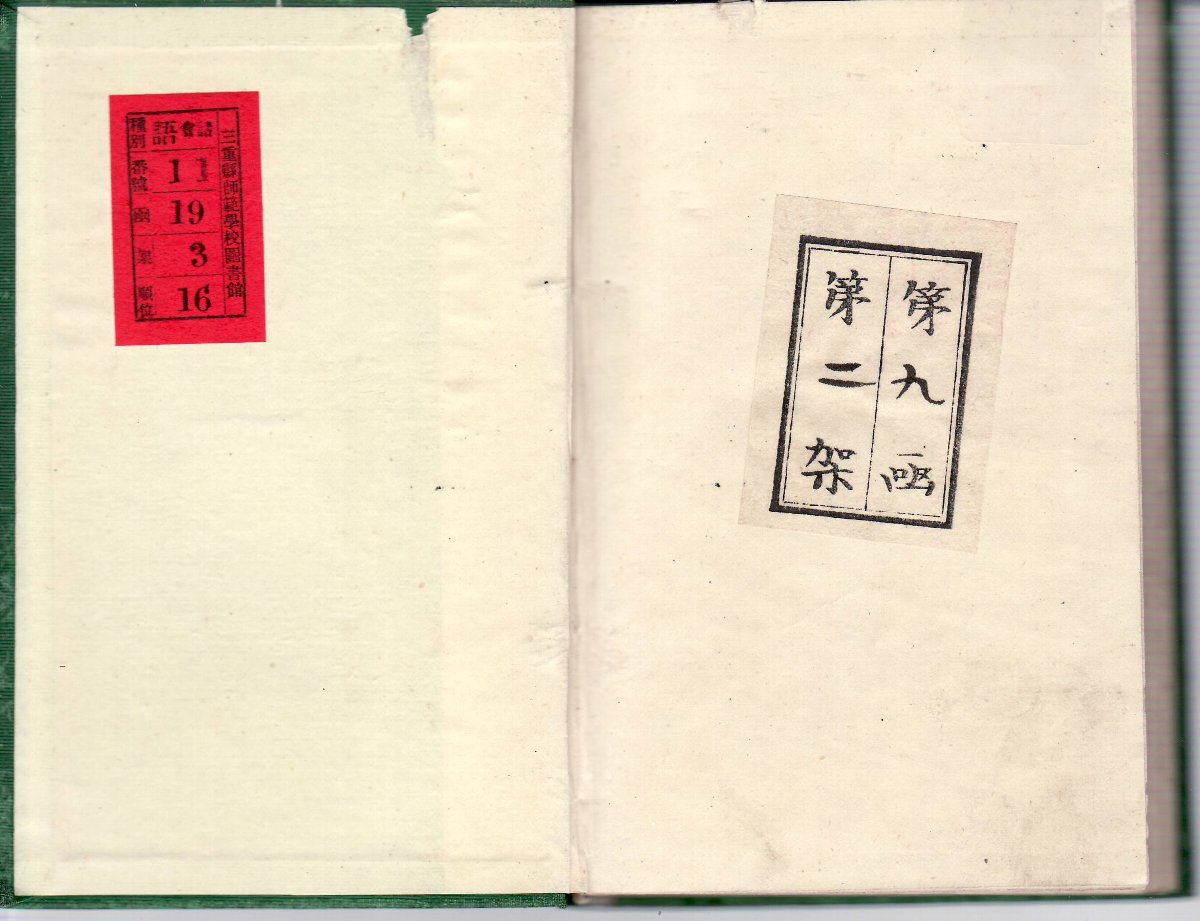 三重縣師範學校圖書館
種別 語 會話
番號 11
函 19
架 3
順位 16
第九函
第二架